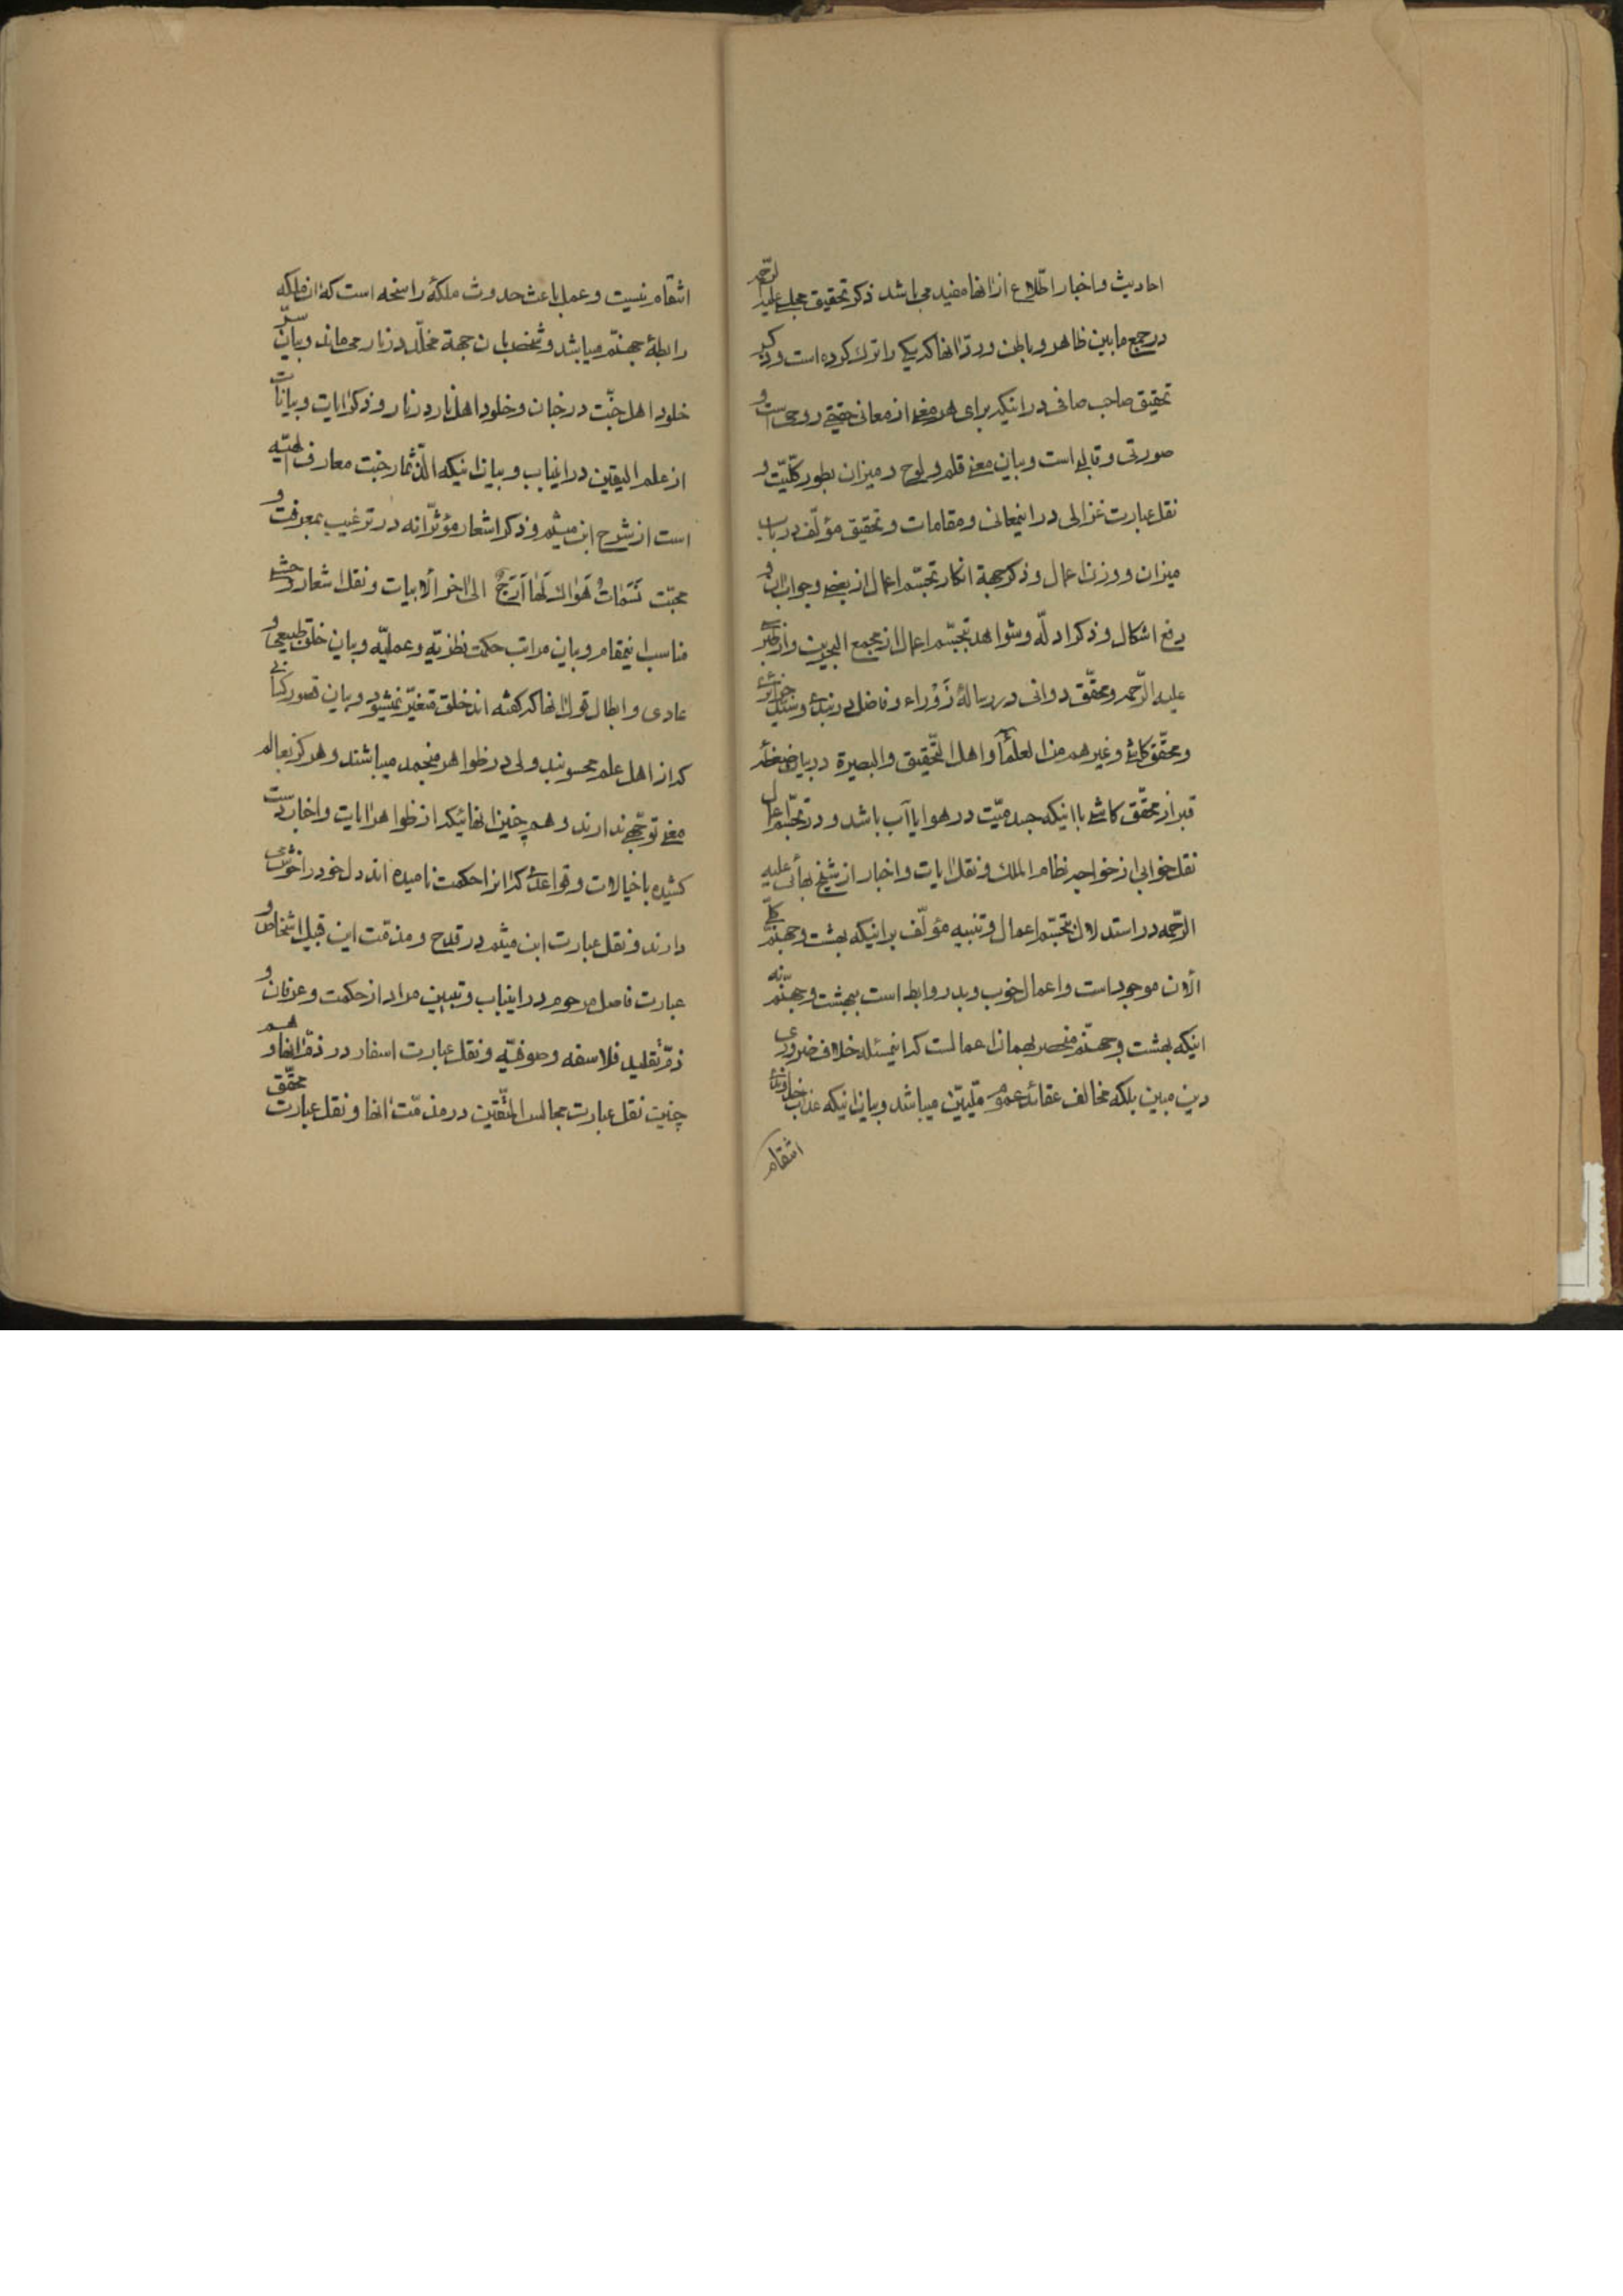 احادیث و اخبار اطّلاع از انها مفید می باشد ذکر تحقیق مجلسی علیه الرّحمه
در جمع ما بین ظاهر و باطن و ردّ انها که یکی را ترک کرده است و ذکر
تحقیق صاحب صافی در اینکه برای هر معنی از معانی حقیقی روحی است و
صورتی و قالبی است و بیان معنی قلم و لوح و میزان بطور کلّیّت و
نقل عبارت غزالی در اینمعانی و مقامات و تحقیق مؤلّف در باب
میزان و وزن اعمال و ذکر جهة انکار تجسّم اعمال از بعضی و جواب ان و
دفع اشکال و ذکر ادلّه و شواهد تجسّم اعمال از مجمع البحرین و از طبرسی
علیه الرّحمه و محقّق دوانی در رسالهٔ زَوْراء و فاضل دربندی و سیّد جزائری
و محقّق کاشی و غیرهم من العلمآء و اهل التّحقیق و البصیرة در بیان ضغطهٔ
قبر از محقّق کاشی با اینکه جسد میّت در هوا یا آب باشد و در تجسّم اعمال
نقل خوابی از خواجه نظام الملک و نقل ایات و اخبار از شیخ بهائی علیه
الرّحمه در استدلال بتجسّم اعمال و تنبیه مؤلّف بر اینکه بهشت و جهنّم کلّی
الأن موجود است و اعمال خوب و بد روابط است ببهشت و جهنّم نه
اینکه بهشت و جهنّم منحصر بهمان اعمالست که اینمسئله خلاف ضروری
دین مبین بلکه مخالف عقائد عموم ملّیّین میباشد و بیان اینکه عذاب خداوندی
انتقام
انتقام نیست و عمل باعث حدوث ملکهٔ راسخه است که ان ملکه
رابطهٔ جهنّم میباشد و شخص بان جهة مخلّد در نار می ماند و بیان سرّ
خلود اهل جنّت در جنان و خلود اهل نار در نار و ذکر ایات و بیانات
از علم الیقین در اینباب و بیان اینکه الذّ ثمار جنّت معارف الهیّه
است از شرح ابن میثم و ذکر اشعار مؤثّرانه در ترغیب بمعرفت و
محبّت نَسَماتُ هَواکَ لَها اَرَجٌ الی اخر الأبیات و نقل اشعار وحشی
مناسب اینمقام و بیان مراتب حکمت نظریّه و عملیّه و بیان خلق طبیعی و
عادی و ابطال قول انها که کفته اند خلق متغیّر نمیشود و بیان قصور کسانی
که از اهل علم محسوبند ولی در ظواهر منجمد میباشند و هرکز بعالم
معنی توجّهی ندارند و هم چنین انهائیکه از ظواهر ایات و اخبار دست
کشیده با خیالات و قواعدی که انرا حکمت نامیده اند دل خود را خوش
دارند و نقل عبارت ابن میثم در قدح و مذمّت این قبیل اشخاص و
عبارت فاضل مرحوم در اینباب و تبیین مراد از حکمت و عرفان و
ذمّ تقلید فلاسفه و صوفیّه و نقل عبارت اسفار در ذمّ انها و هم
چنین نقل عبارت مجالس المتّقین در مذمّت انها و نقل عبارت محقّق